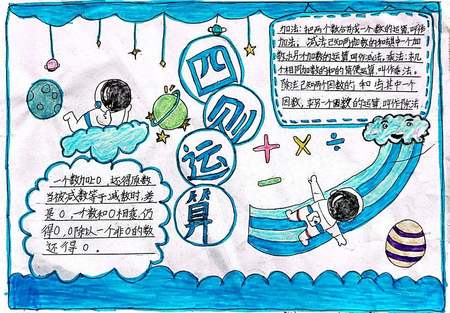 四则运算
加法:把两个数合成一个数的运算,叫作
加法。减法:已知两加数的和与其中一个加
数,求另个加数的运算叫作减法。乘法:求几
个相同加数的和的简便运算,叫作乘法。
除法:已知两个因数的和与其中一个
因数,求另一个因数的运算,叫作除法.
+ × ÷
一个数加上0,还得原数
当被减数等于减数时,差
是0,一个数和0相乘,仍
得0,0除以一个非0的数
还得0。